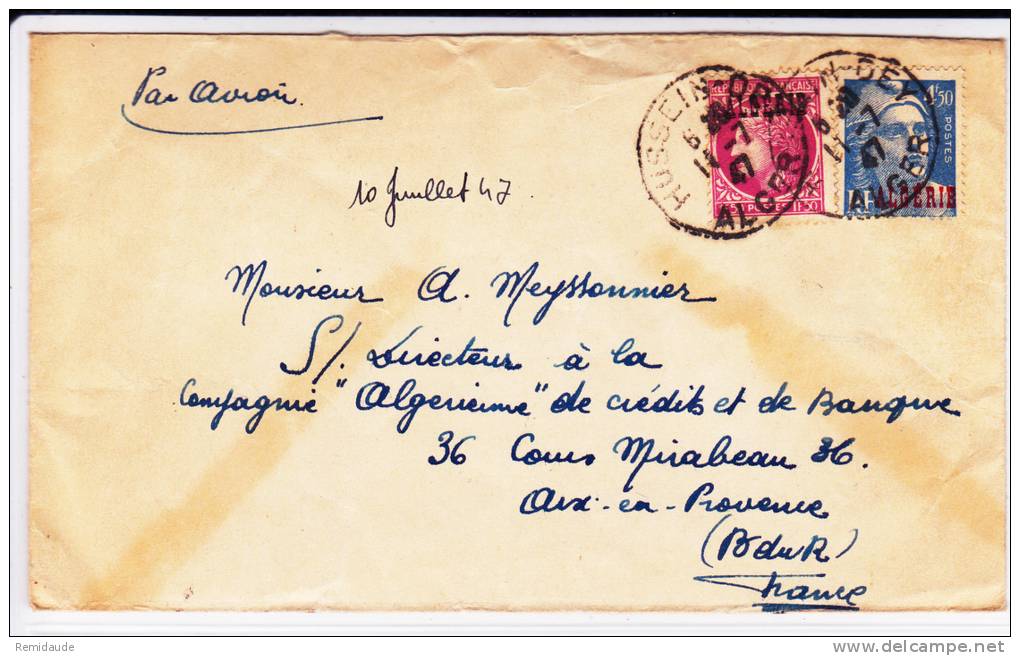 Par Avion
10 Juillet 47
HUSSEIN-DEY
ALGER
REPUBLIQUE FRANÇAISE
POSTES 1F50
4F50
POSTES
RF
ALGERIE
Monsieur A. Meyssonnier
S/. Directeur à la
Compagnie "Algerienne" de crédits et de Banque
36 Cours Mirabeau 36.
Aix-en-Provence
(BduR)
France
Remidaude
www.delcampe.net